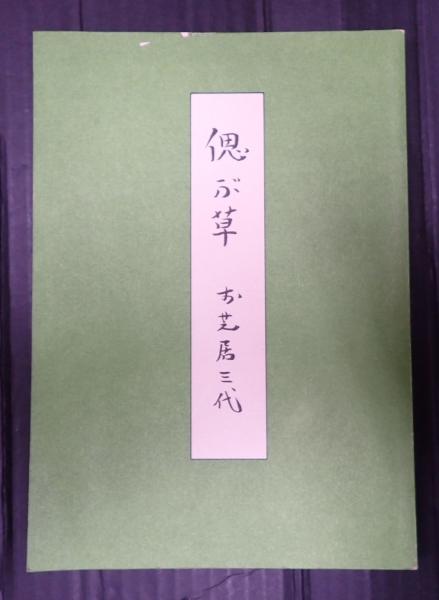 偲ぶ草
お芝居三代